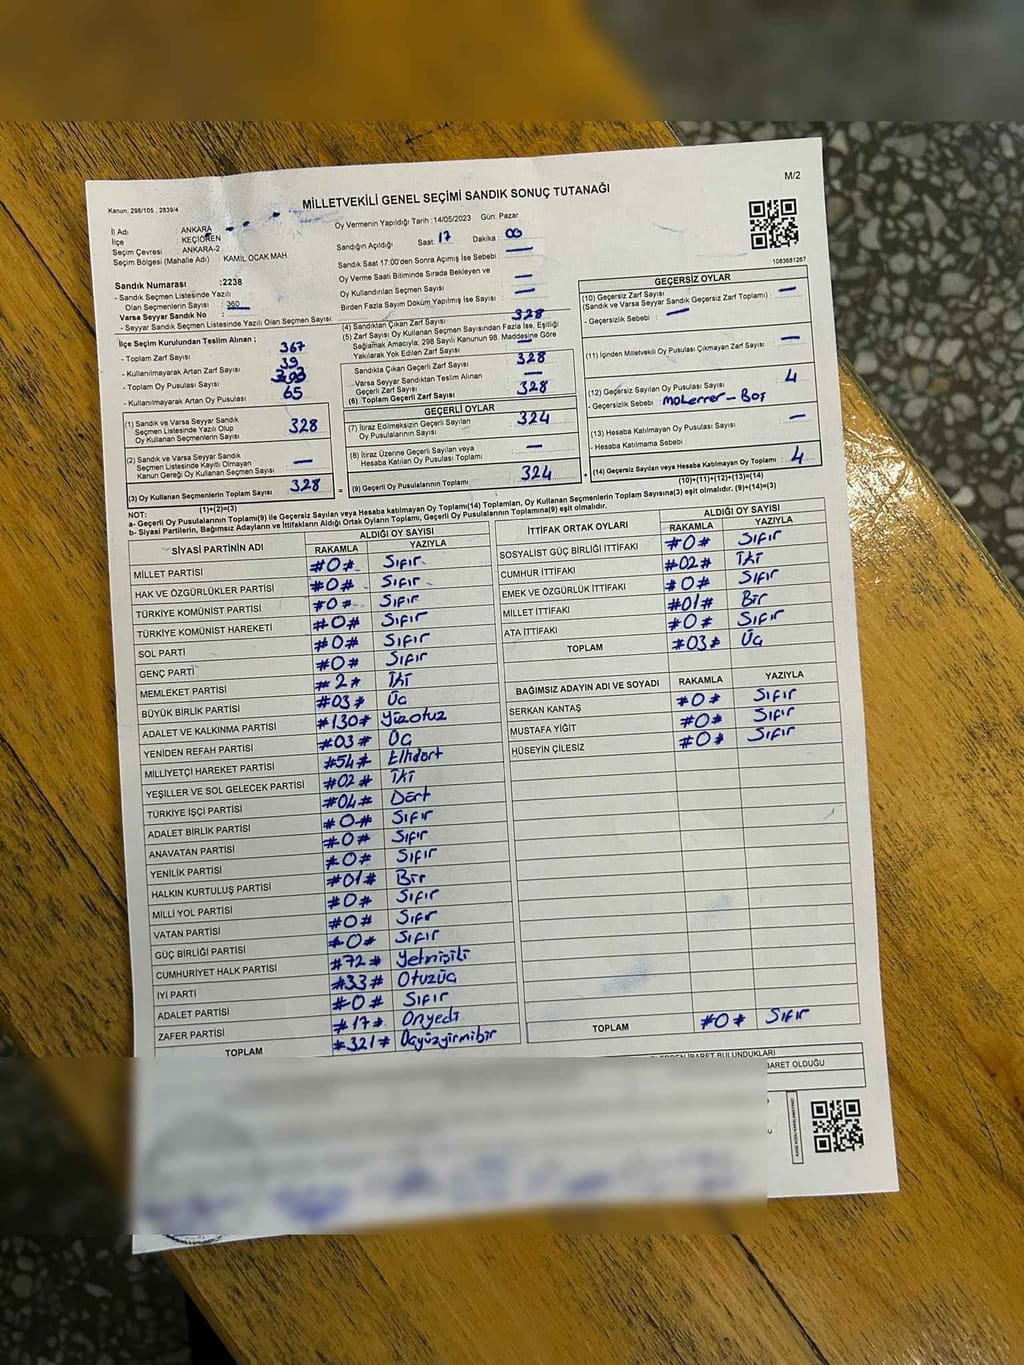 M/2
MİLLETVEKİLİ GENEL SEÇİMİ SANDIK SONUÇ TUTANAĞI
Kanun: 298/105 , 2839/4
İl Adı : ANKARA
İlçe : KEÇİÖREN
Seçim Çevresi : ANKARA-2
Seçim Bölgesi (Mahalle Adı) : KAMİL OCAK MAH.
Sandık Numarası :2238
- Sandık Seçmen Listesinde Yazılı
Olan Seçmenlerin Sayısı : 360
Varsa Seyyar Sandık No :
- Seyyar Sandık Seçmen Listesinde Yazılı Olan Seçmen Sayısı:
Oy Vermenin Yapıldığı Tarih :14/05/2023 Gün: Pazar
Sandığın Açıldığı Saat: 17 Dakika: 00
Sandık Saat 17:00'den Sonra Açılmış İse Sebebi : —
Oy Verme Saati Bitiminde Sırada Bekleyen ve
Oy Kullandırılan Seçmen Sayısı : —
Birden Fazla Sayım Döküm Yapılmış İse Sayısı : —
İlçe Seçim Kurulundan Teslim Alınan ;
- Toplam Zarf Sayısı : 367
- Kullanılmayarak Artan Zarf Sayısı : 39
- Toplam Oy Pusulası Sayısı :
- Kullanılmayarak Artan Oy Pusulası : 65
(1) Sandık ve Varsa Seyyar Sandık
Seçmen Listesinde Yazılı Olup
Oy Kullanan Seçmenlerin Sayısı : 328
(2) Sandık ve Varsa Seyyar Sandık
Seçmen Listesinde Kayıtlı Olmayan
Kanun Gereği Oy Kullanan Seçmen Sayısı : —
(3) Oy Kullanan Seçmenlerin Toplam Sayısı : 328
(1)+(2)=(3)
(4) Sandıktan Çıkan Zarf Sayısı : 328
(5) Zarf Sayısı Oy Kullanan Seçmen Sayısından Fazla İse, Eşitliği
Sağlamak Amacıyla; 298 Sayılı Kanunun 98. Maddesine Göre
Yakılarak Yok Edilen Zarf Sayısı : —
Sandıkta Çıkan Geçerli Zarf Sayısı : 328
Varsa Seyyar Sandıktan Teslim Alınan
Geçerli Zarf Sayısı : —
(6) Toplam Geçerli Zarf Sayısı : 328
GEÇERLİ OYLAR
(7) İtiraz Edilmeksizin Geçerli Sayılan
Oy Pusulalarının Sayısı : 324
(8) İtiraz Üzerine Geçerli Sayılan veya
Hesaba Katılan Oy Pusulası Toplamı : —
= (9) Geçerli Oy Pusulalarının Toplamı : 324
1083681267
GEÇERSİZ OYLAR
(10) Geçersiz Zarf Sayısı
(Sandık ve Varsa Seyyar Sandık Geçersiz Zarf Toplamı) : —
- Geçersizlik Sebebi : —
(11) İçinden Milletvekili Oy Pusulası Çıkmayan Zarf Sayısı : —
(12) Geçersiz Sayılan Oy Pusulası Sayısı : 4
- Geçersizlik Sebebi : mokerrer - Boş
(13) Hesaba Katılmayan Oy Pusulası Sayısı : —
- Hesaba Katılmama Sebebi :
+ (14) Geçersiz Sayılan veya Hesaba Katılmayan Oy Toplamı : 4
(10)+(11)+(12)+(13)=(14)
NOT:
a- Geçerli Oy Pusulalarının Toplamı(9) ile Geçersiz Sayılan veya Hesaba katılmayan Oy Toplamı(14) Toplamları, Oy Kullanan Seçmenlerin Toplam Sayısına(3) eşit olmalıdır. (9)+(14)=(3)
b- Siyasi Partilerin, Bağımsız Adayların ve İttifakların Aldığı Ortak Oyların Toplamı, Geçerli Oy Pusulalarının Toplamına(9) eşit olmalıdır.
SİYASİ PARTİNİN ADI ALDIĞI OY SAYISI
RAKAMLA YAZIYLA
MİLLET PARTİSİ #0# Sıfır
HAK VE ÖZGÜRLÜKLER PARTİSİ #0# Sıfır
TÜRKİYE KOMÜNİST PARTİSİ #0# Sıfır
TÜRKİYE KOMÜNİST HAREKETİ #0# Sıfır
SOL PARTİ #0# Sıfır
GENÇ PARTİ #0# Sıfır
MEMLEKET PARTİSİ #2# İki
BÜYÜK BİRLİK PARTİSİ #03# Üç
ADALET VE KALKINMA PARTİSİ #130# Yüzotuz
YENİDEN REFAH PARTİSİ #03# Üç
MİLLİYETÇİ HAREKET PARTİSİ #54# Ellidört
YEŞİLLER VE SOL GELECEK PARTİSİ #02# İki
TÜRKİYE İŞÇİ PARTİSİ #04# Dört
ADALET BİRLİK PARTİSİ #0# Sıfır
ANAVATAN PARTİSİ #0# Sıfır
YENİLİK PARTİSİ #0# Sıfır
HALKIN KURTULUŞ PARTİSİ #01# Bir
MİLLİ YOL PARTİSİ #0# Sıfır
VATAN PARTİSİ #0# Sıfır
GÜÇ BİRLİĞİ PARTİSİ #0# Sıfır
CUMHURİYET HALK PARTİSİ #72# Yetmişiki
İYİ PARTİ #33# Otuzüç
ADALET PARTİSİ #0# Sıfır
ZAFER PARTİSİ #17# Onyedi
TOPLAM #321# Üçyüzyirmibir
İTTİFAK ORTAK OYLARI ALDIĞI OY SAYISI
RAKAMLA YAZIYLA
SOSYALİST GÜÇ BİRLİĞİ İTTİFAKI #0# Sıfır
CUMHUR İTTİFAKI #02# İki
EMEK VE ÖZGÜRLÜK İTTİFAKI #0# Sıfır
MİLLET İTTİFAKI #01# Bir
ATA İTTİFAKI #0# Sıfır
TOPLAM #03# Üç
BAĞIMSIZ ADAYIN ADI VE SOYADI RAKAMLA YAZIYLA
SERKAN KANTAŞ #0# Sıfır
MUSTAFA YİĞİT #0# Sıfır
HÜSEYİN ÇİLESİZ #0# Sıfır
TOPLAM #0# Sıfır
İBARET BULUNDUKLARI
BARET OLDUĞU